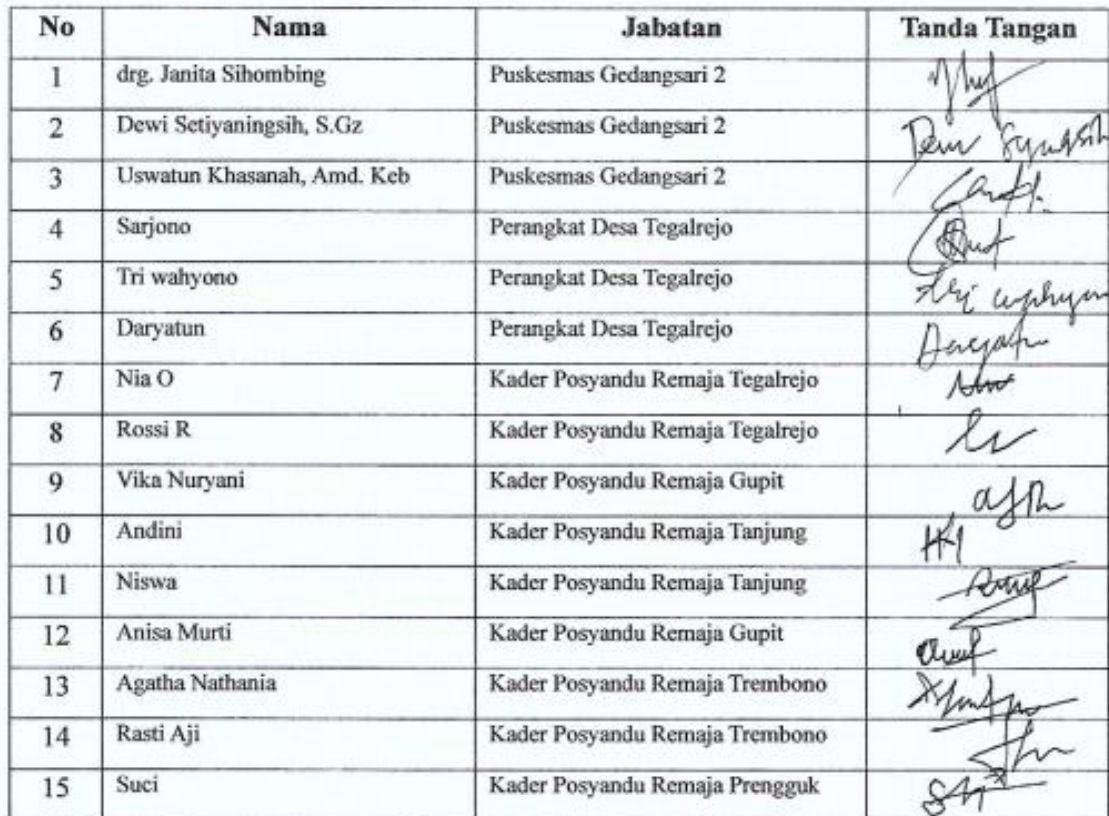 No Nama Jabatan Tanda Tangan
1 drg. Janita Sihombing Puskesmas Gedangsari 2
2 Dewi Setiyaningsih, S.Gz Puskesmas Gedangsari 2
3 Uswatun Khasanah, Amd. Keb Puskesmas Gedangsari 2
4 Sarjono Perangkat Desa Tegalrejo
5 Tri wahyono Perangkat Desa Tegalrejo
6 Daryatun Perangkat Desa Tegalrejo
7 Nia O Kader Posyandu Remaja Tegalrejo
8 Rossi R Kader Posyandu Remaja Tegalrejo
9 Vika Nuryani Kader Posyandu Remaja Gupit
10 Andini Kader Posyandu Remaja Tanjung
11 Niswa Kader Posyandu Remaja Tanjung
12 Anisa Murti Kader Posyandu Remaja Gupit
13 Agatha Nathania Kader Posyandu Remaja Trembono
14 Rasti Aji Kader Posyandu Remaja Trembono
15 Suci Kader Posyandu Remaja Prengguk